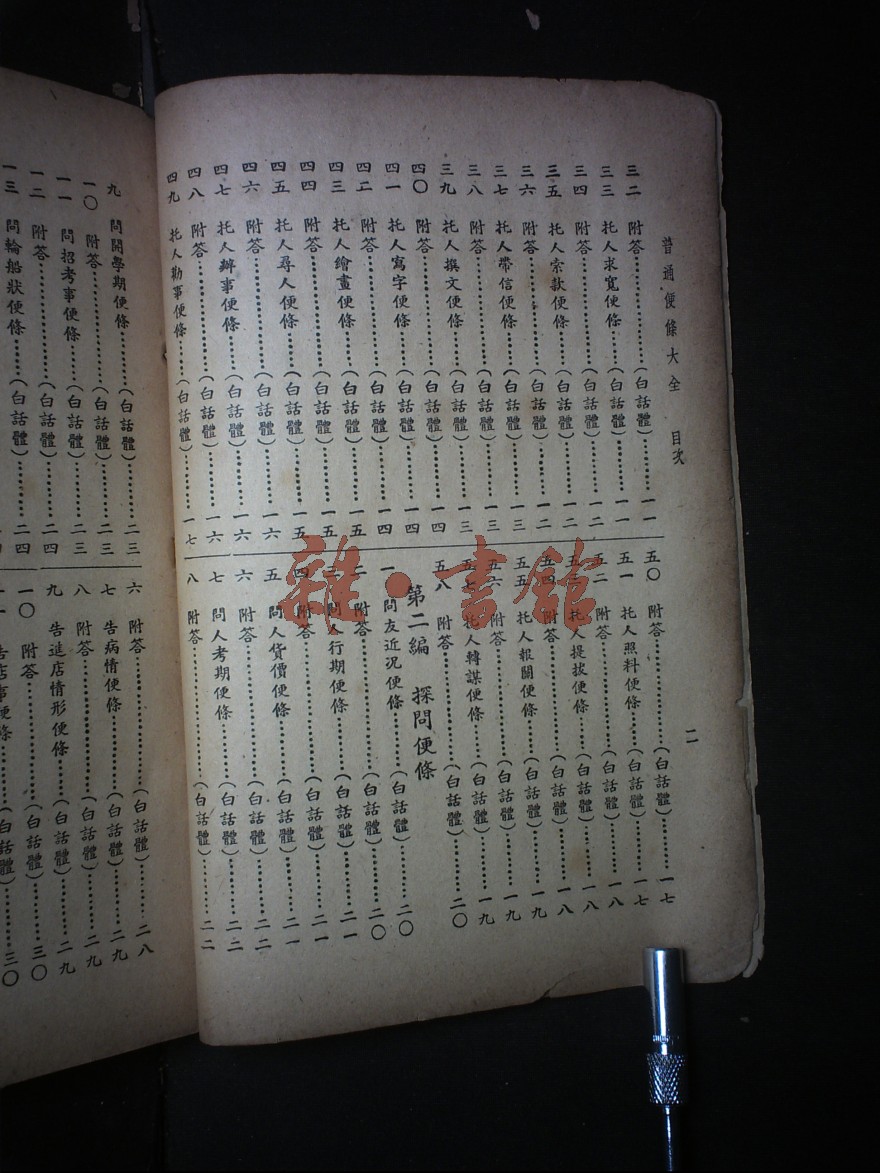 普通便條大全 目次
二
三二 附答……(白話體)……一一
三三 托人求寬便條……(白話體)……一一
三四 附答……(白話體)……一二
三五 托人索款便條……(白話體)……一二
三六 附答……(白話體)……一二
三七 托人帶信便條……(白話體)……一三
三八 附答……(白話體)……一三
三九 托人撰文便條……(白話體)……一三
四〇 附答……(白話體)……一四
四一 托人寫字便條……(白話體)……一四
四二 附答……(白話體)……一四
四三 托人繪畫便條……(白話體)……一五
四四 附答……(白話體)……一五
四五 托人尋人便條……(白話體)……一五
四六 附答……(白話體)……一六
四七 托人辦事便條……(白話體)……一六
四八 附答……(白話體)……一六
四九 托人勸事便條……(白話體)……一七
五〇 附答……(白話體)……一七
五一 托人照料便條……(白話體)……一七
五二 附答……(白話體)……一八
五三 托人提拔便條……(白話體)……一八
五四 附答……(白話體)……一八
五五 托人報關便條……(白話體)……一九
五六 附答……(白話體)……一九
五七 托人轉謀便條……(白話體)……一九
五八 附答……(白話體)……二〇
第二編 探問便條
一 問友近況便條……(白話體)……二〇
二 附答……(白話體)……二〇
三 問人行期便條……(白話體)……二一
四 附答……(白話體)……二一
五 問人貨價便條……(白話體)……二一
六 附答……(白話體)……二二
七 問人考期便條……(白話體)……二二
八 附答……(白話體)……二二
九 問開學期便條……(白話體)……二三
一〇 附答……(白話體)……二三
一一 問招考事便條……(白話體)……二三
一二 附答……(白話體)……二四
一三 問輪船狀便條……(白話體)……二四
六 附答……(白話體)……二八
七 告病情便條……(白話體)……二九
八 附答……(白話體)……二九
九 告進店情形便條……(白話體)……二九
一〇 附答……(白話體)……三〇
告店事便條……(白話體)……三〇
雜·書館